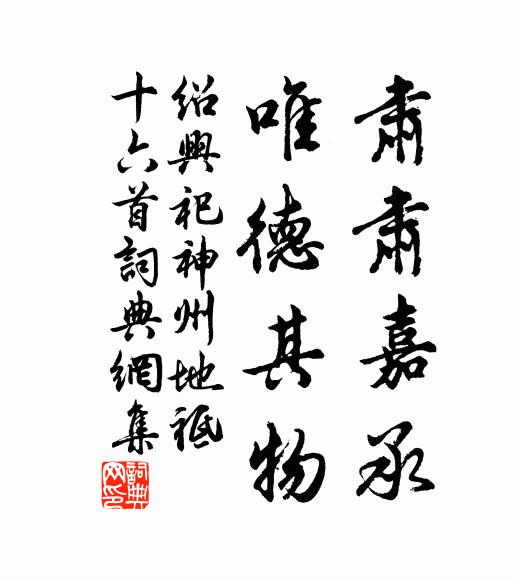 肅肅嘉承
唯德其物
紹興祀神州地祇
十六首詞典網集
詞典网印